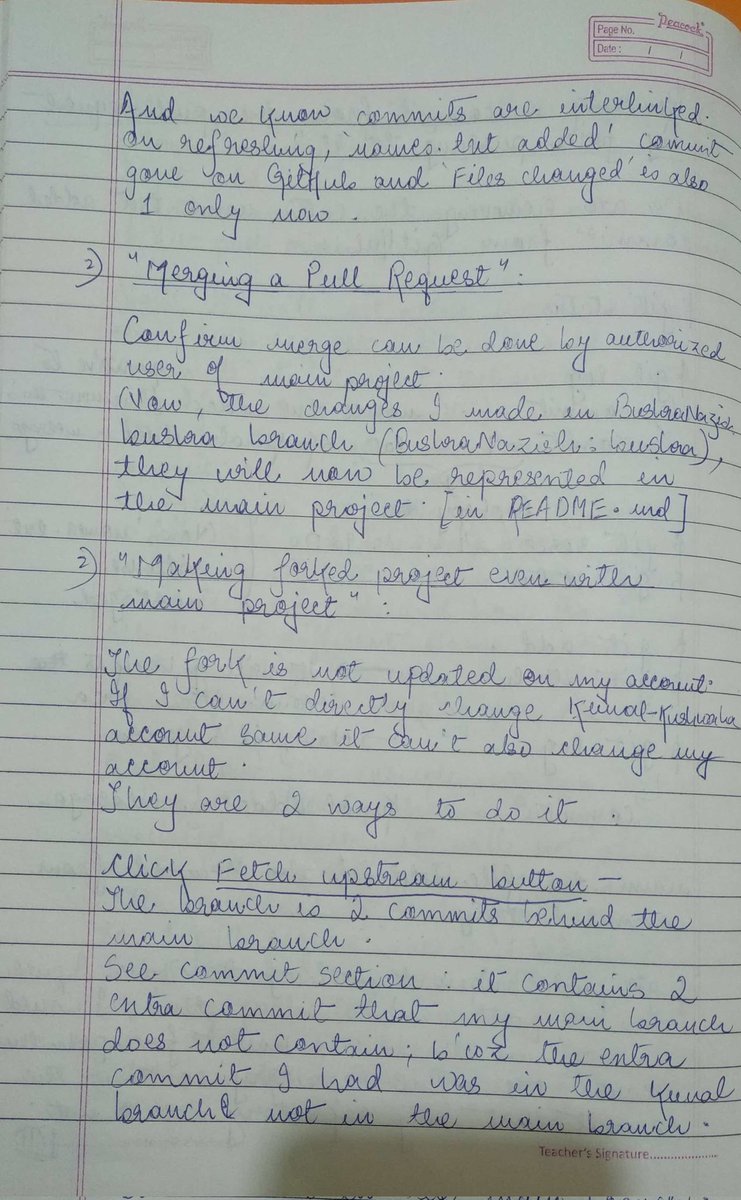 Peacock
Page No.
Date : / /
And we know commits are interlinked.
On refreshing, 'names.txt added' commit
gone on GitHub and 'Files changed' is also
1 only now.
2) "Merging a Pull Request" :
Confirm merge can be done by authorized
user of main project.
Now, the changes I made in BushraNazish
bushra branch (BushraNazish : bushra),
they will now be represented in
the main project. [in README.md]
2) "Making forked project even with
main project" :
The fork is not updated on my account.
If I can't directly change Kunal-Kushwaha
account same it can't also change my
account.
They are 2 ways to do it.
Click Fetch upstream button -
The branch is 2 commits behind the
main branch.
See commit section : it contains 2
extra commit that my main branch
does not contain; b'coz the extra
commit I had was in the Kunal
branch & not in the main branch.
Teacher's Signature